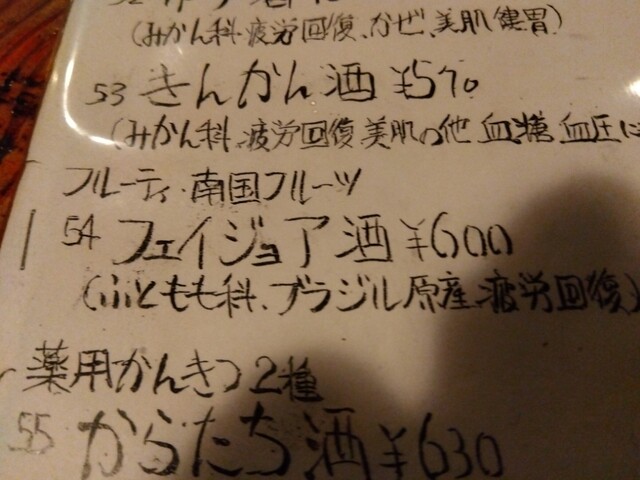 (みかん科、疲労回復、かぜ、美肌、健胃)
53 きんかん酒 ¥570
(みかん科、疲労回復、美肌の他、血糖、血圧に
フルーティ・南国フルーツ
54 フェイジョア酒 ¥600
(ふともも科、ブラジル原産、疲労回復)
薬用かんきつ2種
55 からたち酒 ¥630